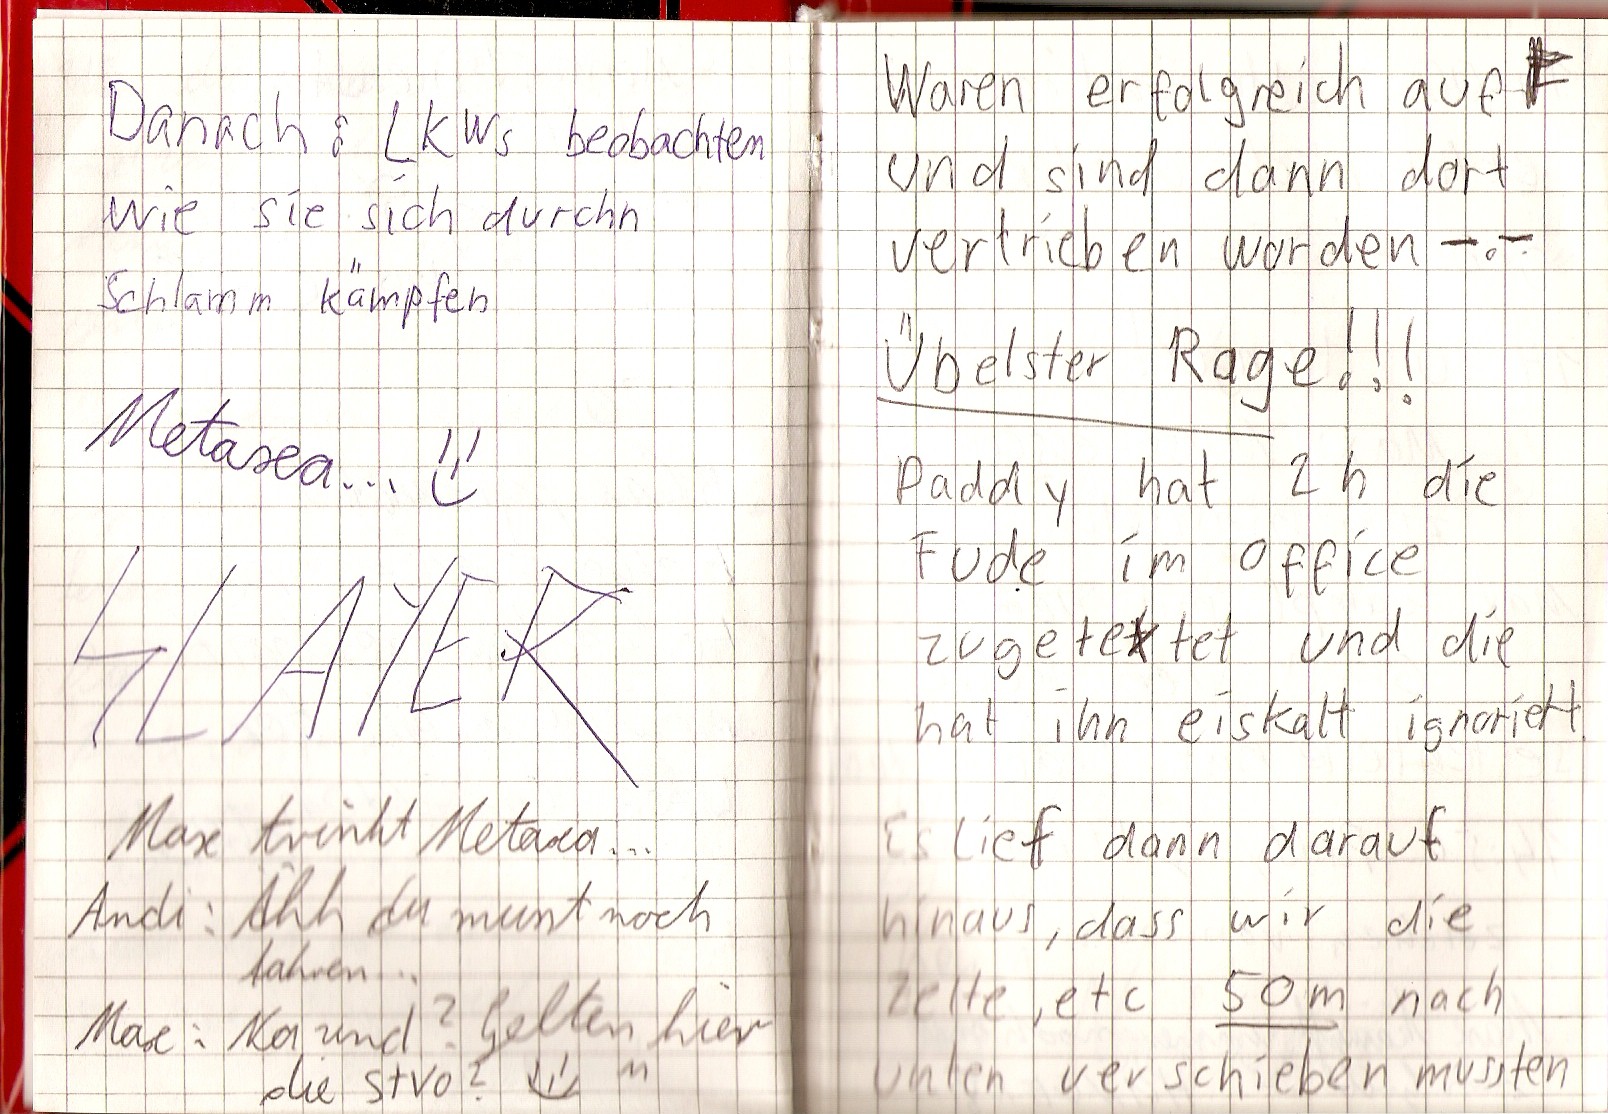 Danach : LKWs beobachten
wie sie sich durchn
Schlamm kämpfen
Metaxa...
SLAYER
Max trinkt Metaxa...
Andi: Ähh du musst noch
fahren...
Max: Na und? Gelten hier
die StVO?
Waren erfolgreich auf
und sind dann dort
vertrieben worden -.-
Übelster Rage!!!
Paddy hat 2h die
Fude im Office
zugetextet und die
hat ihn eiskalt ignoriert
Es lief dann darauf
hinaus, dass wir die
Zelte, etc 50m nach
unten verschieben mussten